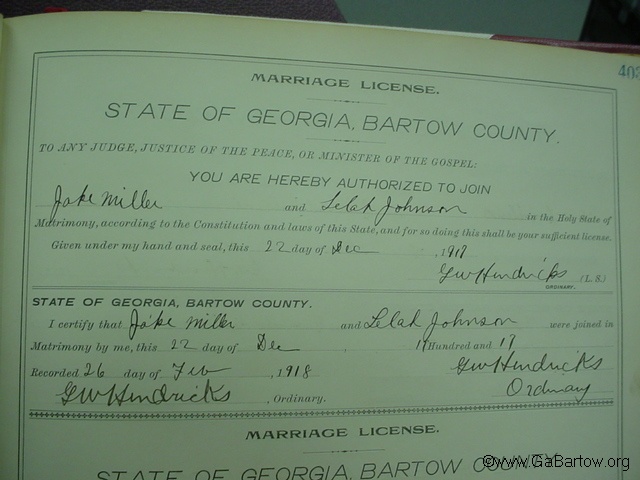 403
MARRIAGE LICENSE.
STATE OF GEORGIA, BARTOW COUNTY.
TO ANY JUDGE, JUSTICE OF THE PEACE, OR MINISTER OF THE GOSPEL:
YOU ARE HEREBY AUTHORIZED TO JOIN
Jake Miller and Lelah Johnson in the Holy State of
Matrimony, according to the Constitution and laws of this State, and for so doing this shall be your sufficient license.
Given under my hand and seal, this 22 day of Dec , 1917
GW Hendricks (L. S.)
ORDINARY.
STATE OF GEORGIA, BARTOW COUNTY.
I certify that Jake Miller and Lelah Johnson were joined in
Matrimony by me, this 22 day of Dec , 19 Hundred and 17
Recorded 26 day of Feb , 1918 GW Hendricks
GW Hendricks , Ordinary. Ordinary
MARRIAGE LICENSE.
STATE OF GEORGIA, BARTOW COUNTY.
©www.GaBartow.org